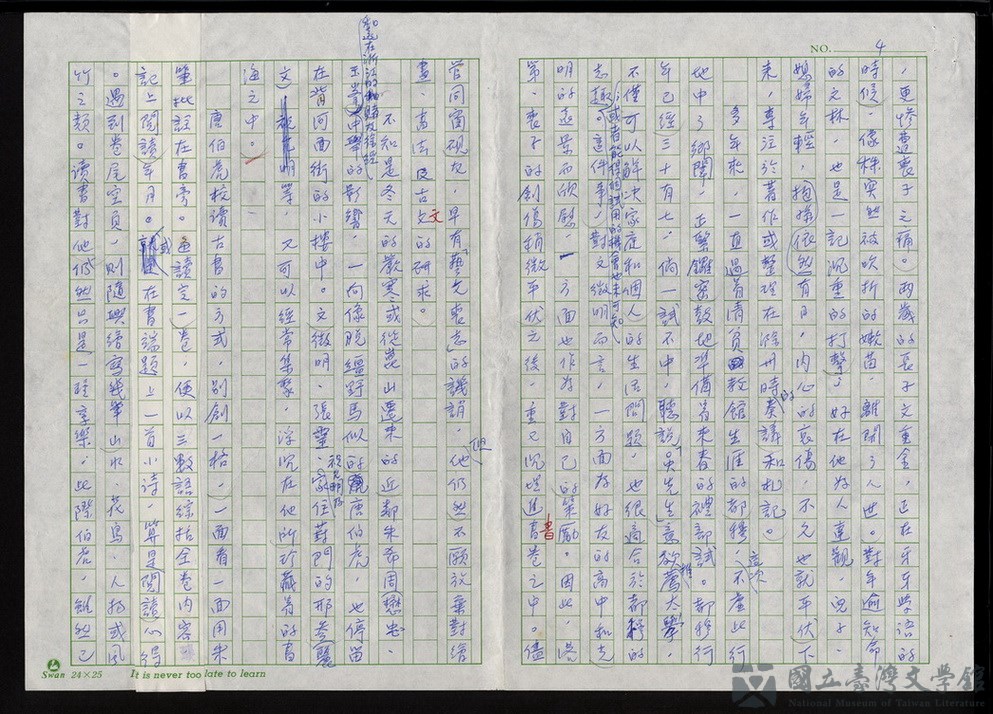 NO. 4
，更慘遭喪子之痛。兩歲的長子文重金，正在牙牙學語的
時候，像株突然被吹折的嫩苗，離開了人世。對年逾知命
的文林，也是一記沉重的打擊；好在他好人達觀，兒子、
媳婦年輕，抱孫依然有日，內心的哀傷，不久也就平伏下
來，專注於著作或整理在滁州時的奏議和札記。
多年來，一直過著清貧教館生涯的都穆，這次不虛此行
地中了鄉闈，正緊鑼密鼓地準備著來春的禮部試。都穆行
年已經三十有七。倘一試不中，聽說吳先生意欲推薦太學，
不僅可以解決家庭和個人的生活問題，也很適合於都穆的
志趣；或者能得個試用的機會也未可知。這件事，對文徵明而言，一方面為好友的高中和光
明的遠景而欣慰，一方面也作為對自己的策勵。因此，落
第、喪子的創傷稍微平伏之後，重又沉埋進書卷之中。儘
管同窗硯友，早有「藝尤喪志」的譏誚，但他仍然不願放棄對繪
畫、書法及古文的研求。
不知是冬天的嚴寒或從崑山遷來的近鄰朱希周懋忠，
和遠在浙江的的影響，一向像脫韁野馬似的唐伯虎，也停留
在背河西街的小樓中。文徵明、張靈、家住對門的邢參麗
文等，又可以經常集聚，浮沉在他所珍藏著的書
海之中。
唐伯虎校讀古書的方式，別創一格，一面看一面用朱
筆批註在書旁。讀完一卷，便以三數語綜括全卷內容，
記上閱讀年月。或在書端題上一首小詩，算是閱讀心得
。遇到卷尾空頁，則隨興繪寫幾筆山水、花鳥、人物或風
竹之類。讀書對他仍然只是一種享樂；此際伯虎，雖然已
Swan 24×25
It is never too late to learn
國立臺灣文學館
National Museum of Taiwan Literature